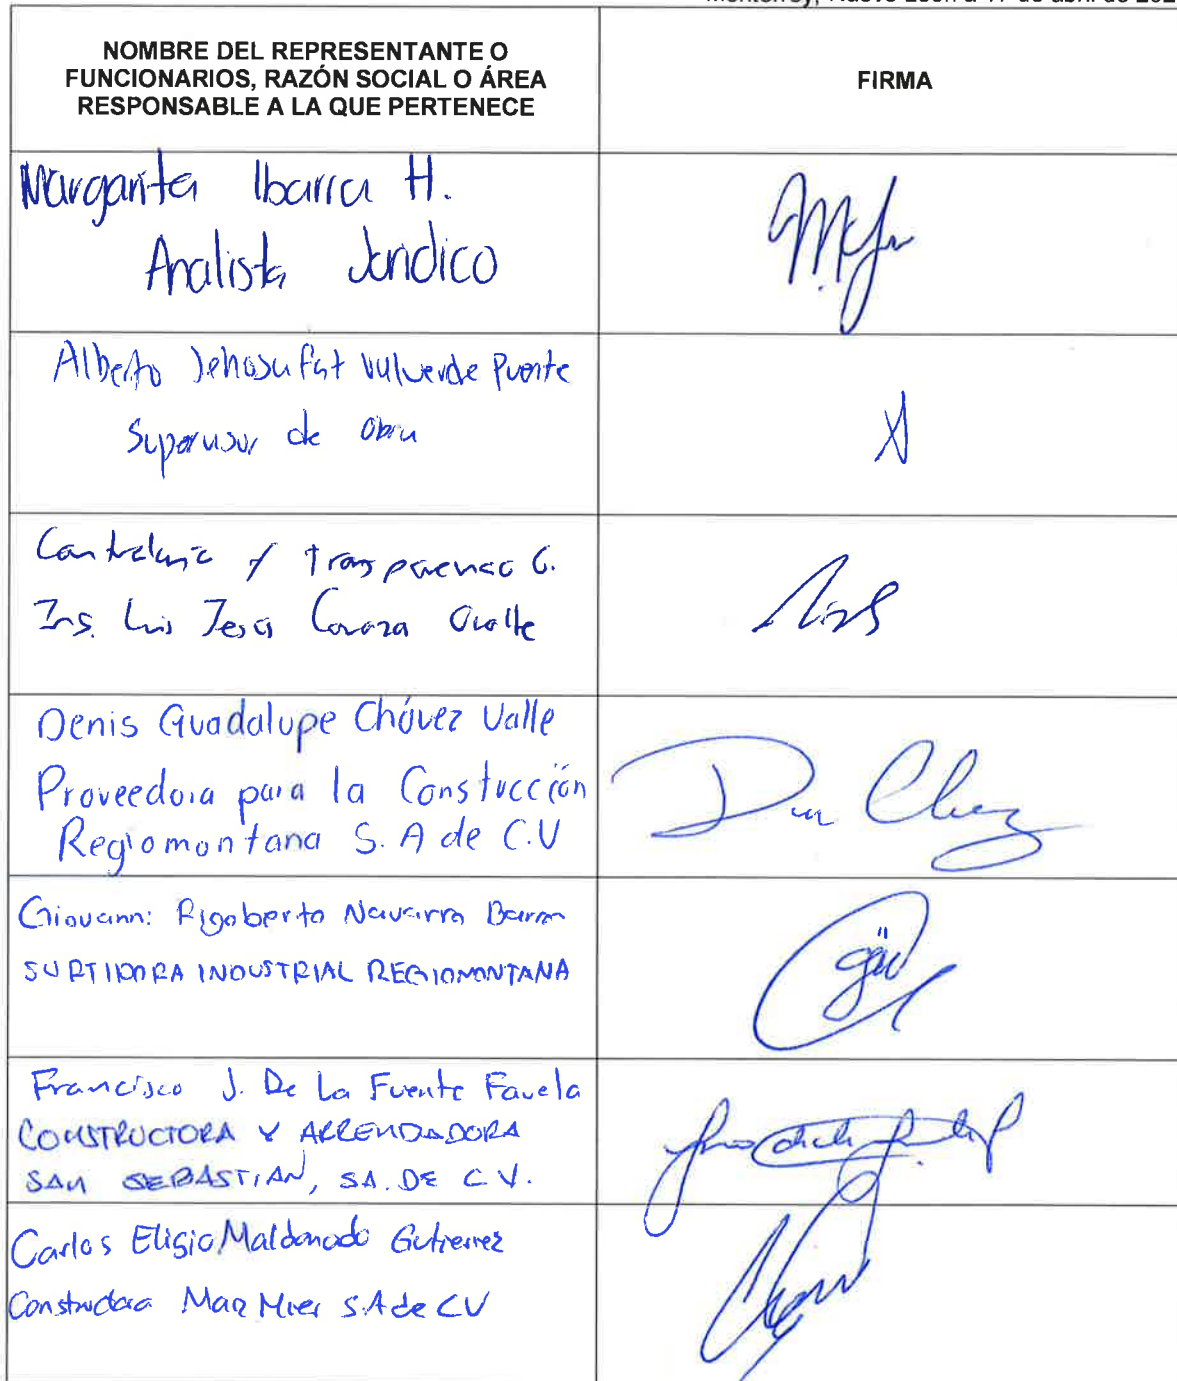 Monterrey, Nuevo León a 17 de abril de 202
NOMBRE DEL REPRESENTANTE O
FUNCIONARIOS, RAZÓN SOCIAL O ÁREA
RESPONSABLE A LA QUE PERTENECE
FIRMA
Margarita Ibarra H.
Analista Jurídico
Alberto Jehosufat Valverde Puente
Supervisor de obra
Contraloria y Transparencia G.
Ing. Luis Jesus Ovalle
Denis Guadalupe Chávez Valle
Proveedora para la Constucción
Regiomontana S.A de C.V
Giovanni Rigoberto Navarro
SURTIDORA INDUSTRIAL REGIOMONTANA
Francisco J. De La Fuente Favela
CONSTRUCTORA Y ARRENDADORA
SAN SEBASTIAN, SA. DE C.V.
Carlos Eligio Maldonado Gutierrez
Constructora Maq Mier S.A de CV